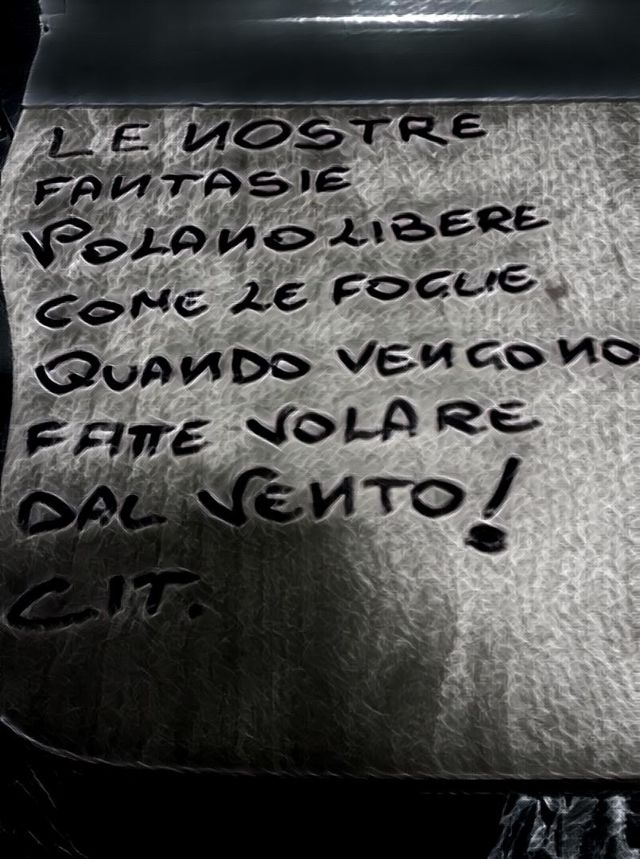 LE NOSTRE
FANTASIE
VOLANO LIBERE
COME LE FOGLIE
QUANDO VENGONO
FATTE VOLARE
DAL VENTO!
CIT.